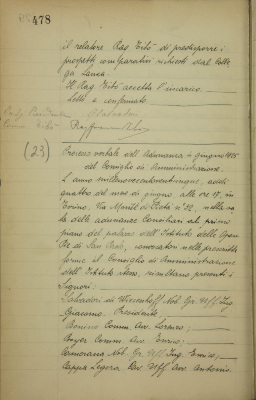 478
il relatore Rag Tito' di predisporre i
prospetti comparativi richiesti dal Colle
ga Lanza.
Il Rag Tito' accetta l'incarico.
Letto e confermato
(23)
Processo verbale dell'Adunanza 4 giugno 1925
del Consiglio di Amministrazione.
L'anno millenovecentoventicinque, addì
quattro del mese di giugno alle ore 17, in
Torino, Via Monte di Pietà n° 32, nella sa
la delle adunanze Consiliari al primo
piano del palazzo dell'Istituto delle Opere
Pie di San Paolo, convocatosi nelle prescritte
forme il Consiglio di Amministrazione
dell'Istituto stesso, risultano presenti i
Signori:
Salvadori di Wiesenhoff Nob. Gr. Uff. Ing.
Giacomo. Presidente
Bonino Comm. Avv. Lorenzo;
Comm. Avv. Enrico;
Nob. Gr. Uff. Ing. Enrico;
Cappa Legora Cav. Uff. Avv. Antonio.